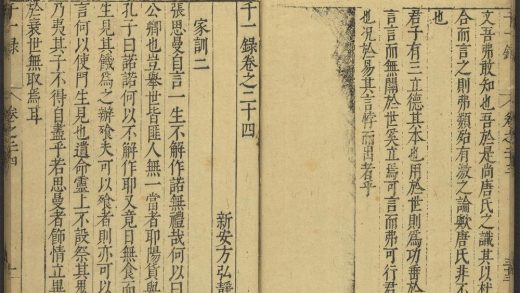 卷之二十三
文吾弗敢知也吾於是尚唐氏之識其以杜
合而言之則弗類殆有激之論歟唐氏非不
君子有三立德其本也用於世則為功垂於
言言而無關於世奚立焉可言而弗可行君
也況於易其言悖而出者乎
千一録卷之二十四
新安方弘靜
家訓二
張思曼自言一生不解作諾無禮哉何以曰
公卿也豈舉世皆匪人無一當者耶陽貨與
孔子曰諾諾何以不解作耶又竟日無食而
生見其餓為之辦飧夫可以飧者則亦可以
言何以使門生見也遺命靈上不設祭其
乃夷其子不得自盡乎若思曼者飾情立異
於衰世無取焉耳
千一録 卷之二十四 一